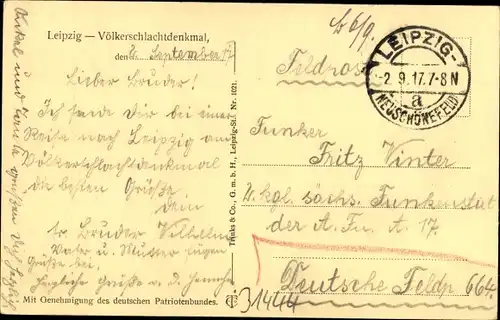 Leipzig — Völkerschlachtdenkmal,
den 2. September 17
Lieber Bruder!
Ich sende Dir bei einer
Reise nach Leipzig am
Völkerschlachtdenkmal
die besten Grüße.
Dein
Bruder Wilhelm
Vater u. Mutter fügen
Grüße bei.
Herzliche Grüße a. d.
Onkel und Tante grüßen Dich herzlich
Mit Genehmigung des deutschen Patriotenbundes.
Trinks & Co., G. m. b. H., Leipzig-St. Nr. 1021.
6/9.
LEIPZIG-
-2.9.17.7-8N
a
NEUSCHÖNEFELD
Feldpost
Funker
Fritz Vinter
2. kgl. sächs. Funkenstat
der A. Fu. A 17.
Deutsche Feldp 664.
31444